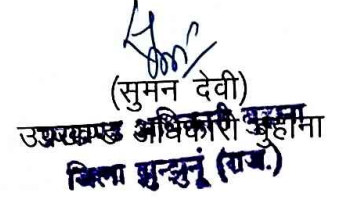 (सुमन देवी)
उपखण्ड अधिकारी बुहाना
जिला झुन्झुनूं (राज.)